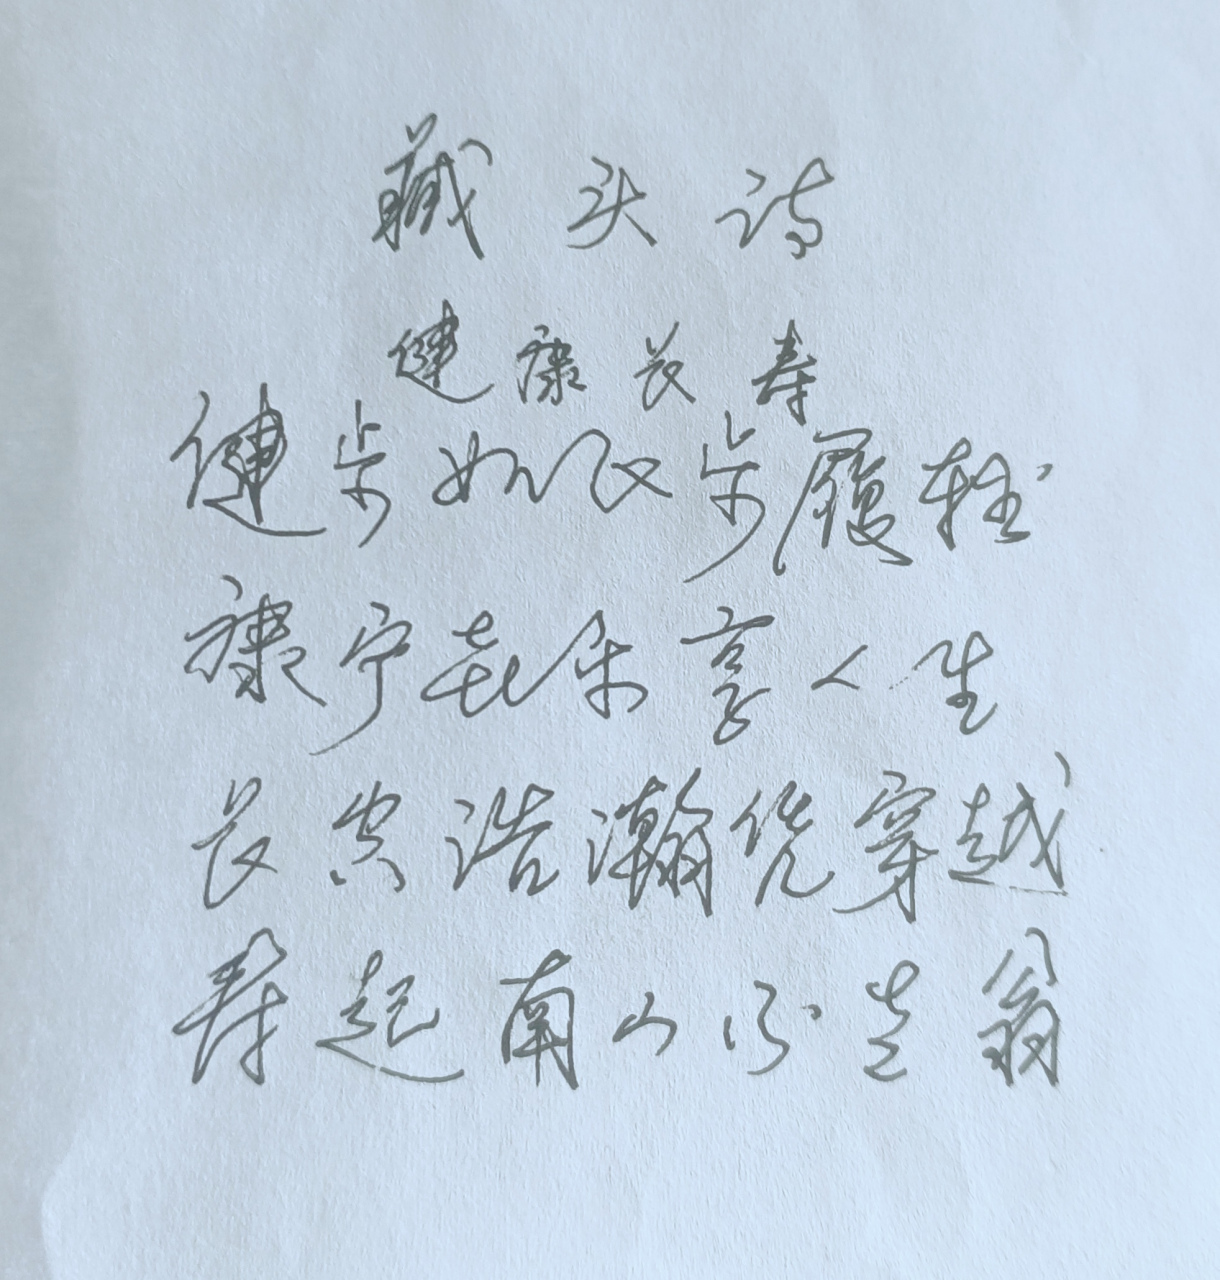 藏头诗
健康长寿
健步如飞步履轻
康宁喜乐享人生
长空浩瀚凭穿越
寿起南山不老翁